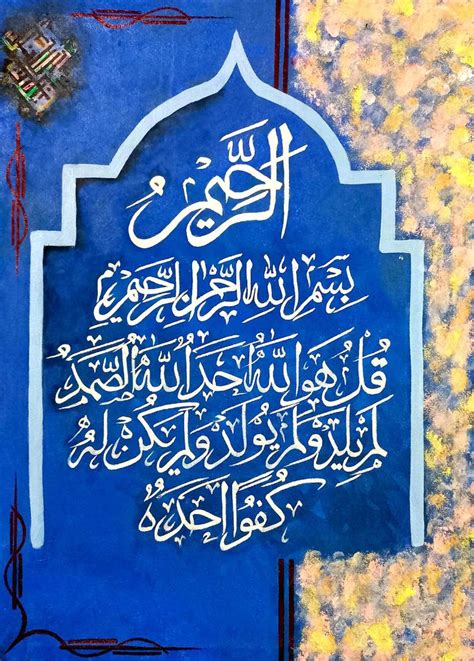 الرَّحِيْمُ
بِسْمِ اللهِ الرَّحْمٰنِ الرَّحِيْمِ
قُلْ هُوَ اللهُ اَحَدٌ اَللهُ الصَّمَدُ
لَمْ يَلِدْ وَلَمْ يُوْلَدْ وَلَمْ يَكُنْ لَهٗ
كُفُوًا اَحَدٌ